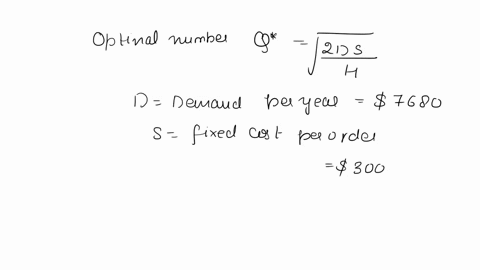 Optimal number Q* = √2DS/H
D = Demand per year = $7680
S = fixed cost per order
= $300